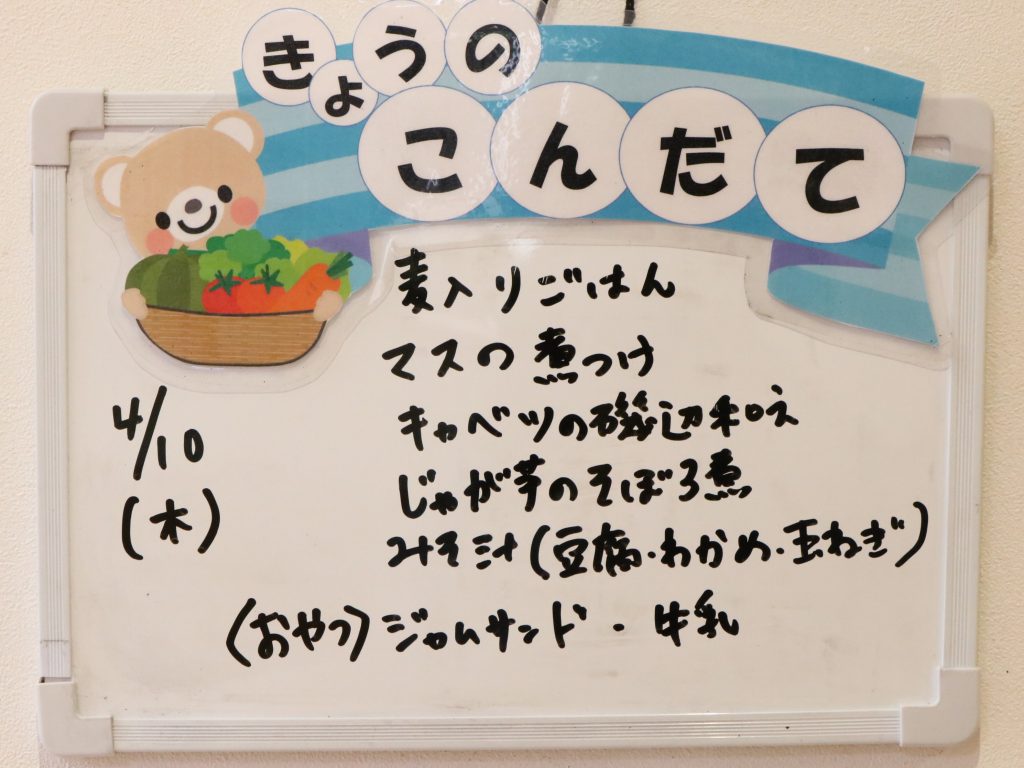 きょうの
こんだて
麦入りごはん
マスの煮つけ
キャベツの磯辺和え
じゃが芋のそぼろ煮
みそ汁(豆腐・わかめ・玉ねぎ)
4/10
(木)
(おやつ)ジャムサンド・牛乳